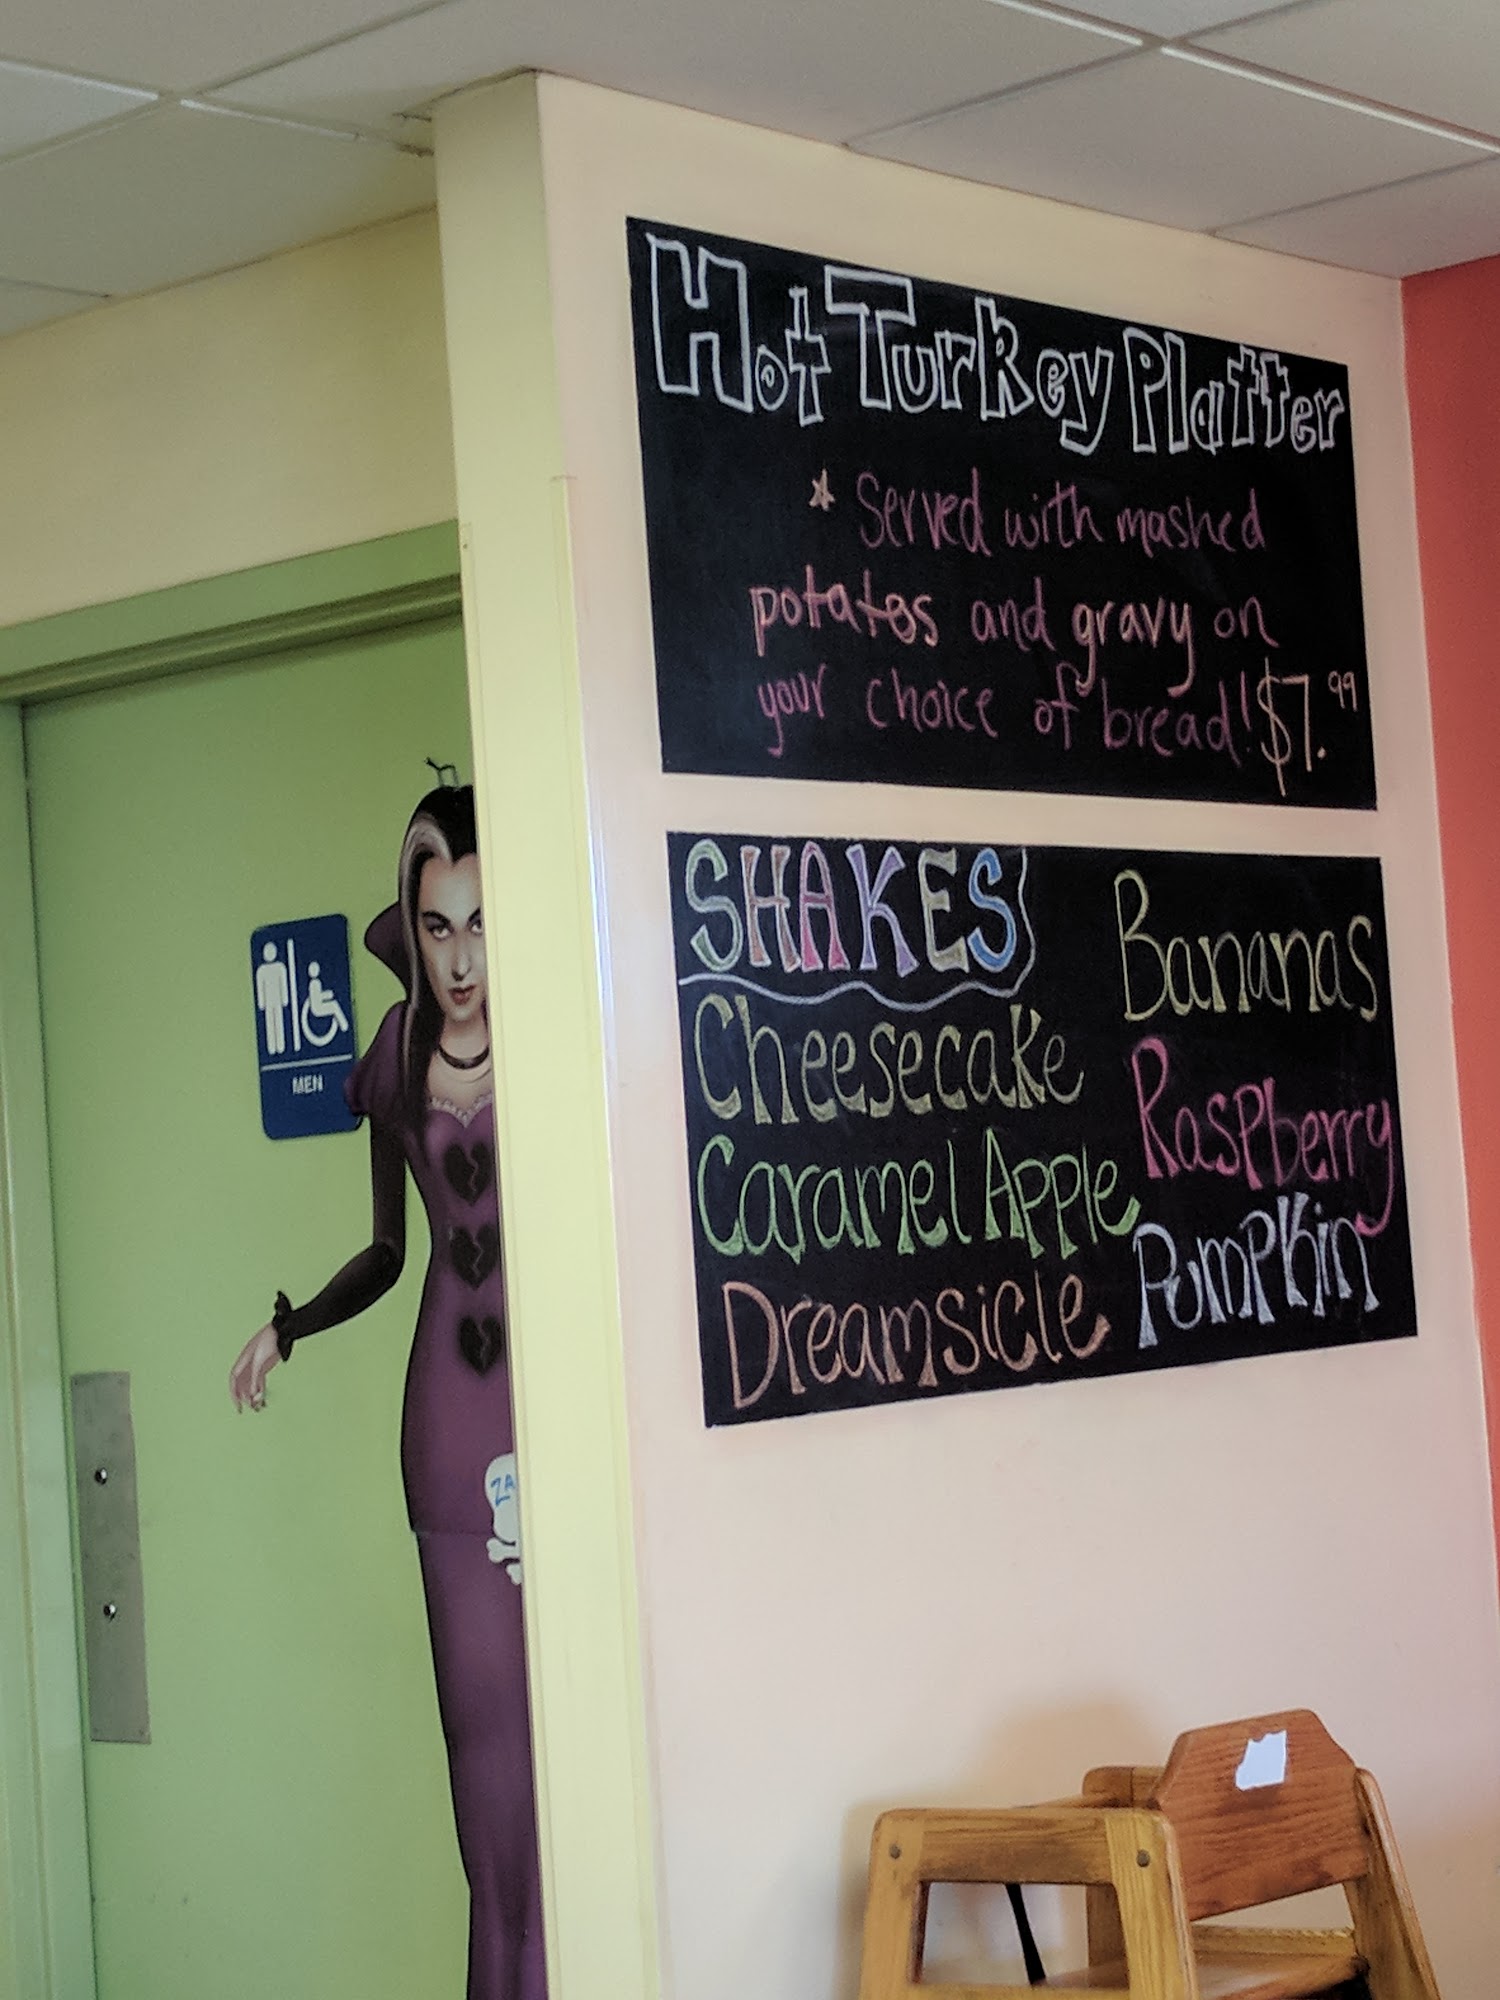 Hot Turkey Platter
* Served with mashed
potatoes and gravy on
your choice of bread! $7.99
SHAKES
Cheesecake
Caramel Apple
Dreamsicle
Bananas
Raspberry
Pumpkin
MEN
ZA